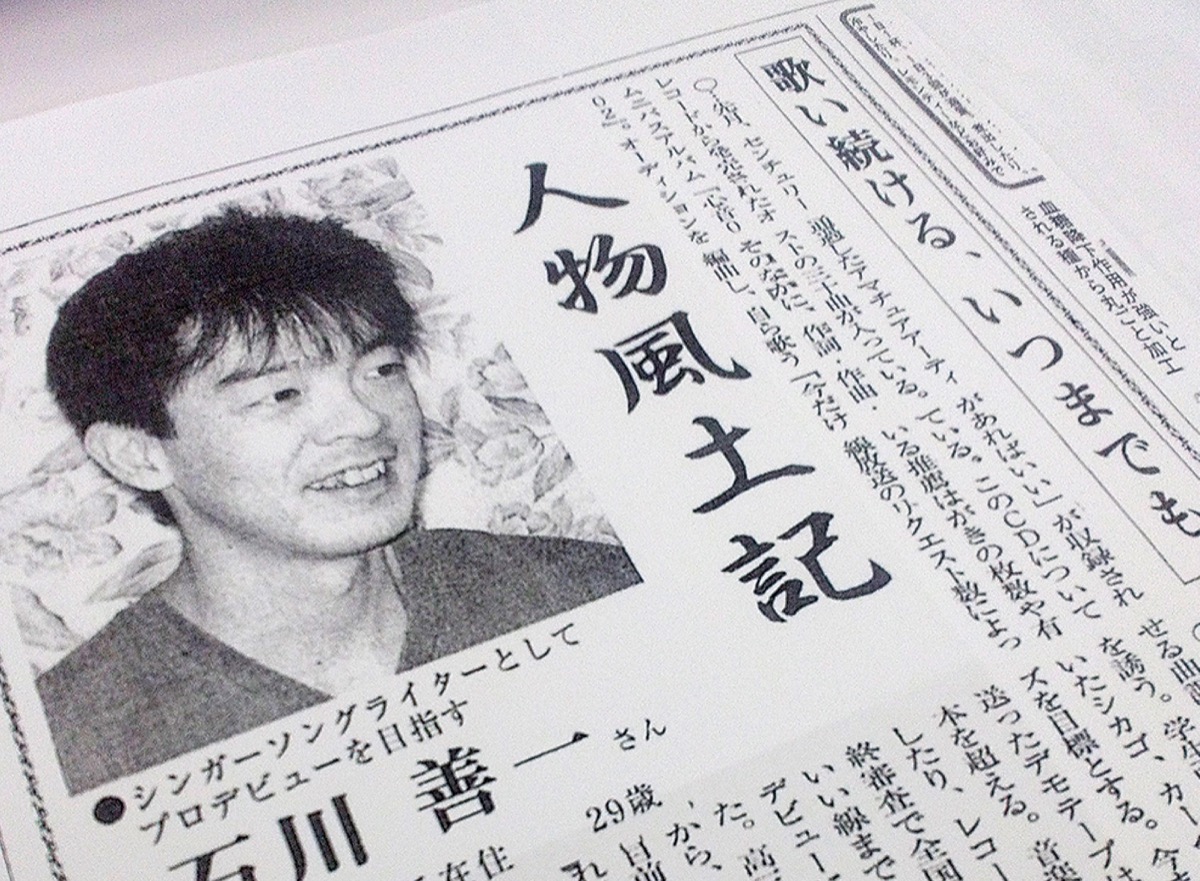 歌い続ける、いつまでも
人物風土記
レコードから発売されたオ
ムニバスアルバム「心誇り
02」。オーディションを
通過したアマチュアアーティ
ストの三十曲が入っている。
そのなかに、作詞・作曲・
編曲し、自ら歌う「今だけ
があればいい」が収録され
ている。このCDについて
いる推薦はがきの枚数や有
線放送のリクエスト数によっ
●シンガーソングライターとして
プロデビューを目指す
石川 善一 さん
29歳
在住
せる曲
を誘う。学生
いたシカゴ、カー
ズを目標とする。今
送ったデモテープは
本を超える。音楽
したり、レコー
終審査で全国
いい線まで
デビュー
た。高三
、から、
目前
血糖降下作用が強いと
される種から丸ごと加工